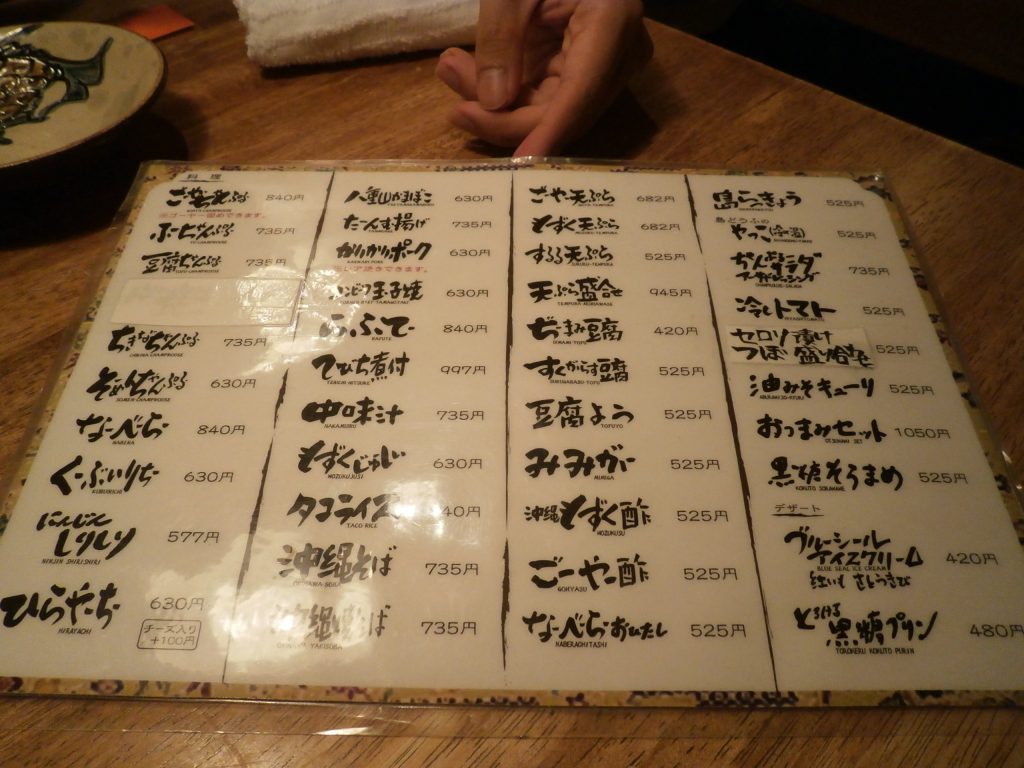 料理
ごーやーちゃんぷるー 840円
GOYA-CHAMPROOSE
※ゴーヤー固めできます。
ふーちゃんぷるー 735円
FU-CHAMPROOSE
豆腐ちゃんぷるー 735円
TOFU-CHAMPROOSE
ちきなちゃんぷるー 735円
CHIKINA-CHAMPROOSE
そーめんちゃんぷるー 630円
SOMEN-CHAMPROOSE
なーべらー 840円
NABERA
くーぶいりちー 630円
KUBUIRICHI
にんじん
しりしり 577円
NINJIN SHIRI SHIRI
ひらやーちー 630円
HIRAYACHI
チーズ入り
+100円
八重山かまぼこ 630円
たーんむ揚げ 735円
かりかりポーク 630円
KARIKARI PORK
コンビーフ玉子焼 630円
らふてー 840円
RAFUTE
てびち煮付 997円
TEBICHI-NITSUKE
中味汁 735円
NAKAMIJIRU
もずくじゅーしい 630円
MOZUKUJUSI
タコライス 40円
TACO RICE
沖縄そば 735円
OKINAWA-SOBA
沖縄焼そば 735円
OKINAWA YAKISOBA
ごーや天ぷら 682円
もずく天ぷら 682円
MOZUKU-TEMPURA
するる天ぷら 525円
SURURU-TEMPURA
天ぷら盛合せ 945円
TEMPURA-MORIAWASE
ぢーまみ豆腐 420円
すくがらす豆腐 525円
SUKUGARASU-TOFU
豆腐よう 525円
TOFUYO
みみがー 525円
MIMIGA
沖縄もずく酢 525円
MOZUKUSU
ごーやー酢 525円
GOHYASU
なーべらーおひたし 525円
NABERAOHITASHI
島らっきょう 525円
島どうふの
やっこ 525円
ちゃんぷるー
サラダ 735円
CHAMPROOSE-SALADA
冷しトマト 525円
HIYASHITOMATO
セロリ漬け
つぼ 盛り合わせ 525円
油みそキューリ 525円
ABURAMISO-KYURI
おつまみセット 1050円
OTSUMAMI SET
黒糖そらまめ 525円
KOKUTO SORAMAME
デザート
ブルーシール
アイスクリーム 420円
BLUE SEAL ICE CREAM
紅いも さとうきび
とろける
黒糖プリン 480円
TOROKERU KOKUTO PURIN